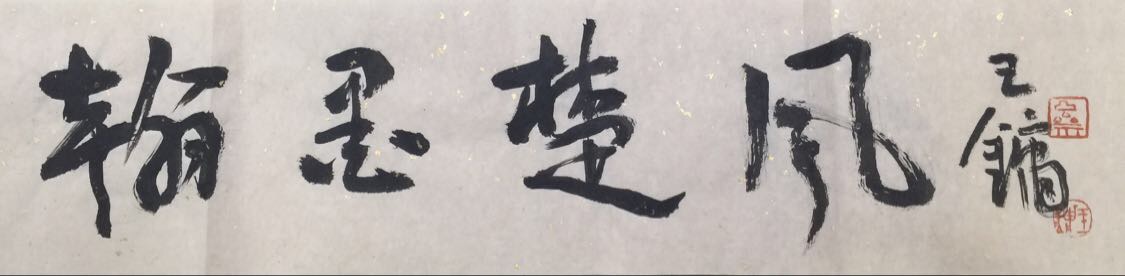 翰墨楚风
王镛